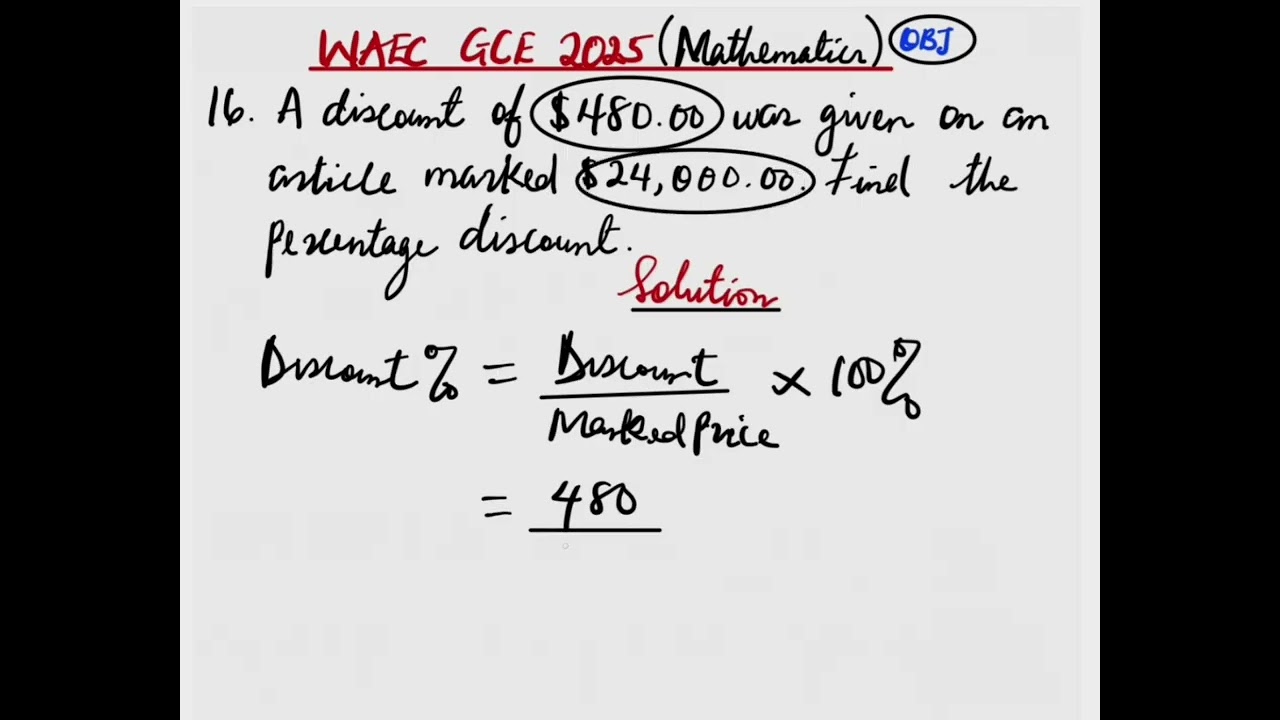 WAEC GCE 2025 (Mathematics) OBJ
16. A discount of $480.00 was given on an
article marked $24,000.00. Find the
percentage discount.
Solution
Discount % = Discount / Marked Price × 100%
= 480